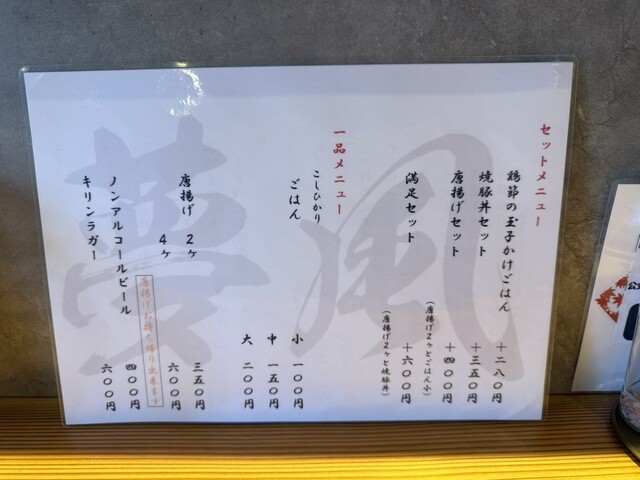 セットメニュー
鶏節の玉子かけごはん 十二八〇円
焼豚丼セット 十三五〇円
唐揚げセット 十四〇〇円
(唐揚げ2ヶとごはん小)
満足セット 十六〇〇円
(唐揚げ2ヶと焼豚丼)
一品メニュー
こしひかり
ごはん 小 一〇〇円
中 一五〇円
大 二〇〇円
唐揚げ 2ヶ 三五〇円
4ヶ 六〇〇円
唐揚げお持ち帰り出来ます
ノンアルコールビール 四〇〇円
キリンラガー 六〇〇円
夢風